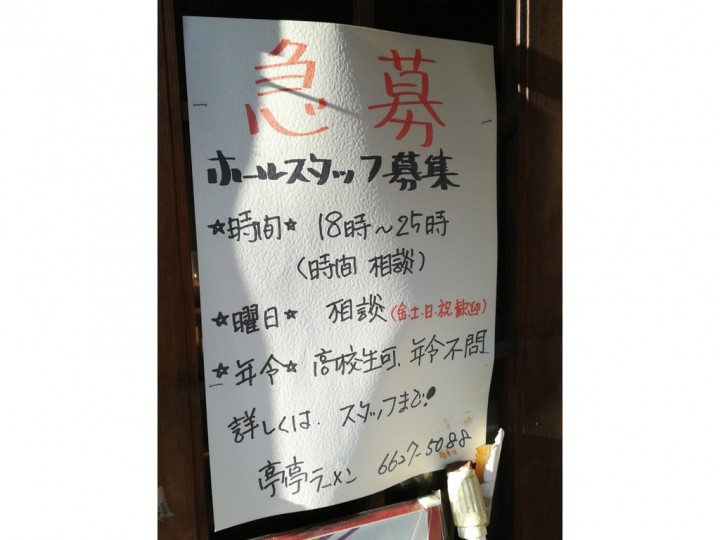 急募
ホールスタッフ募集
☆時間☆ 18時～25時
(時間 相談)
☆曜日☆ 相談(金・土・日・祝 歓迎)
☆年令☆ 高校生可、年令不問
詳しくは、スタッフまで!
亭亭ラーメン 6627-5088